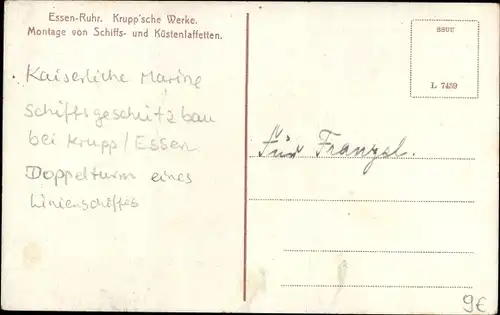 Essen-Ruhr. Krupp'sche Werke.
Montage von Schiffs- und Küstenlaffetten.
SSUU
L 7459
Kaiserliche Marine
Schiffsgeschützbau
bei Krupp/Essen
Doppelturm eines
Linienschiffes
Für Franzel.
9€